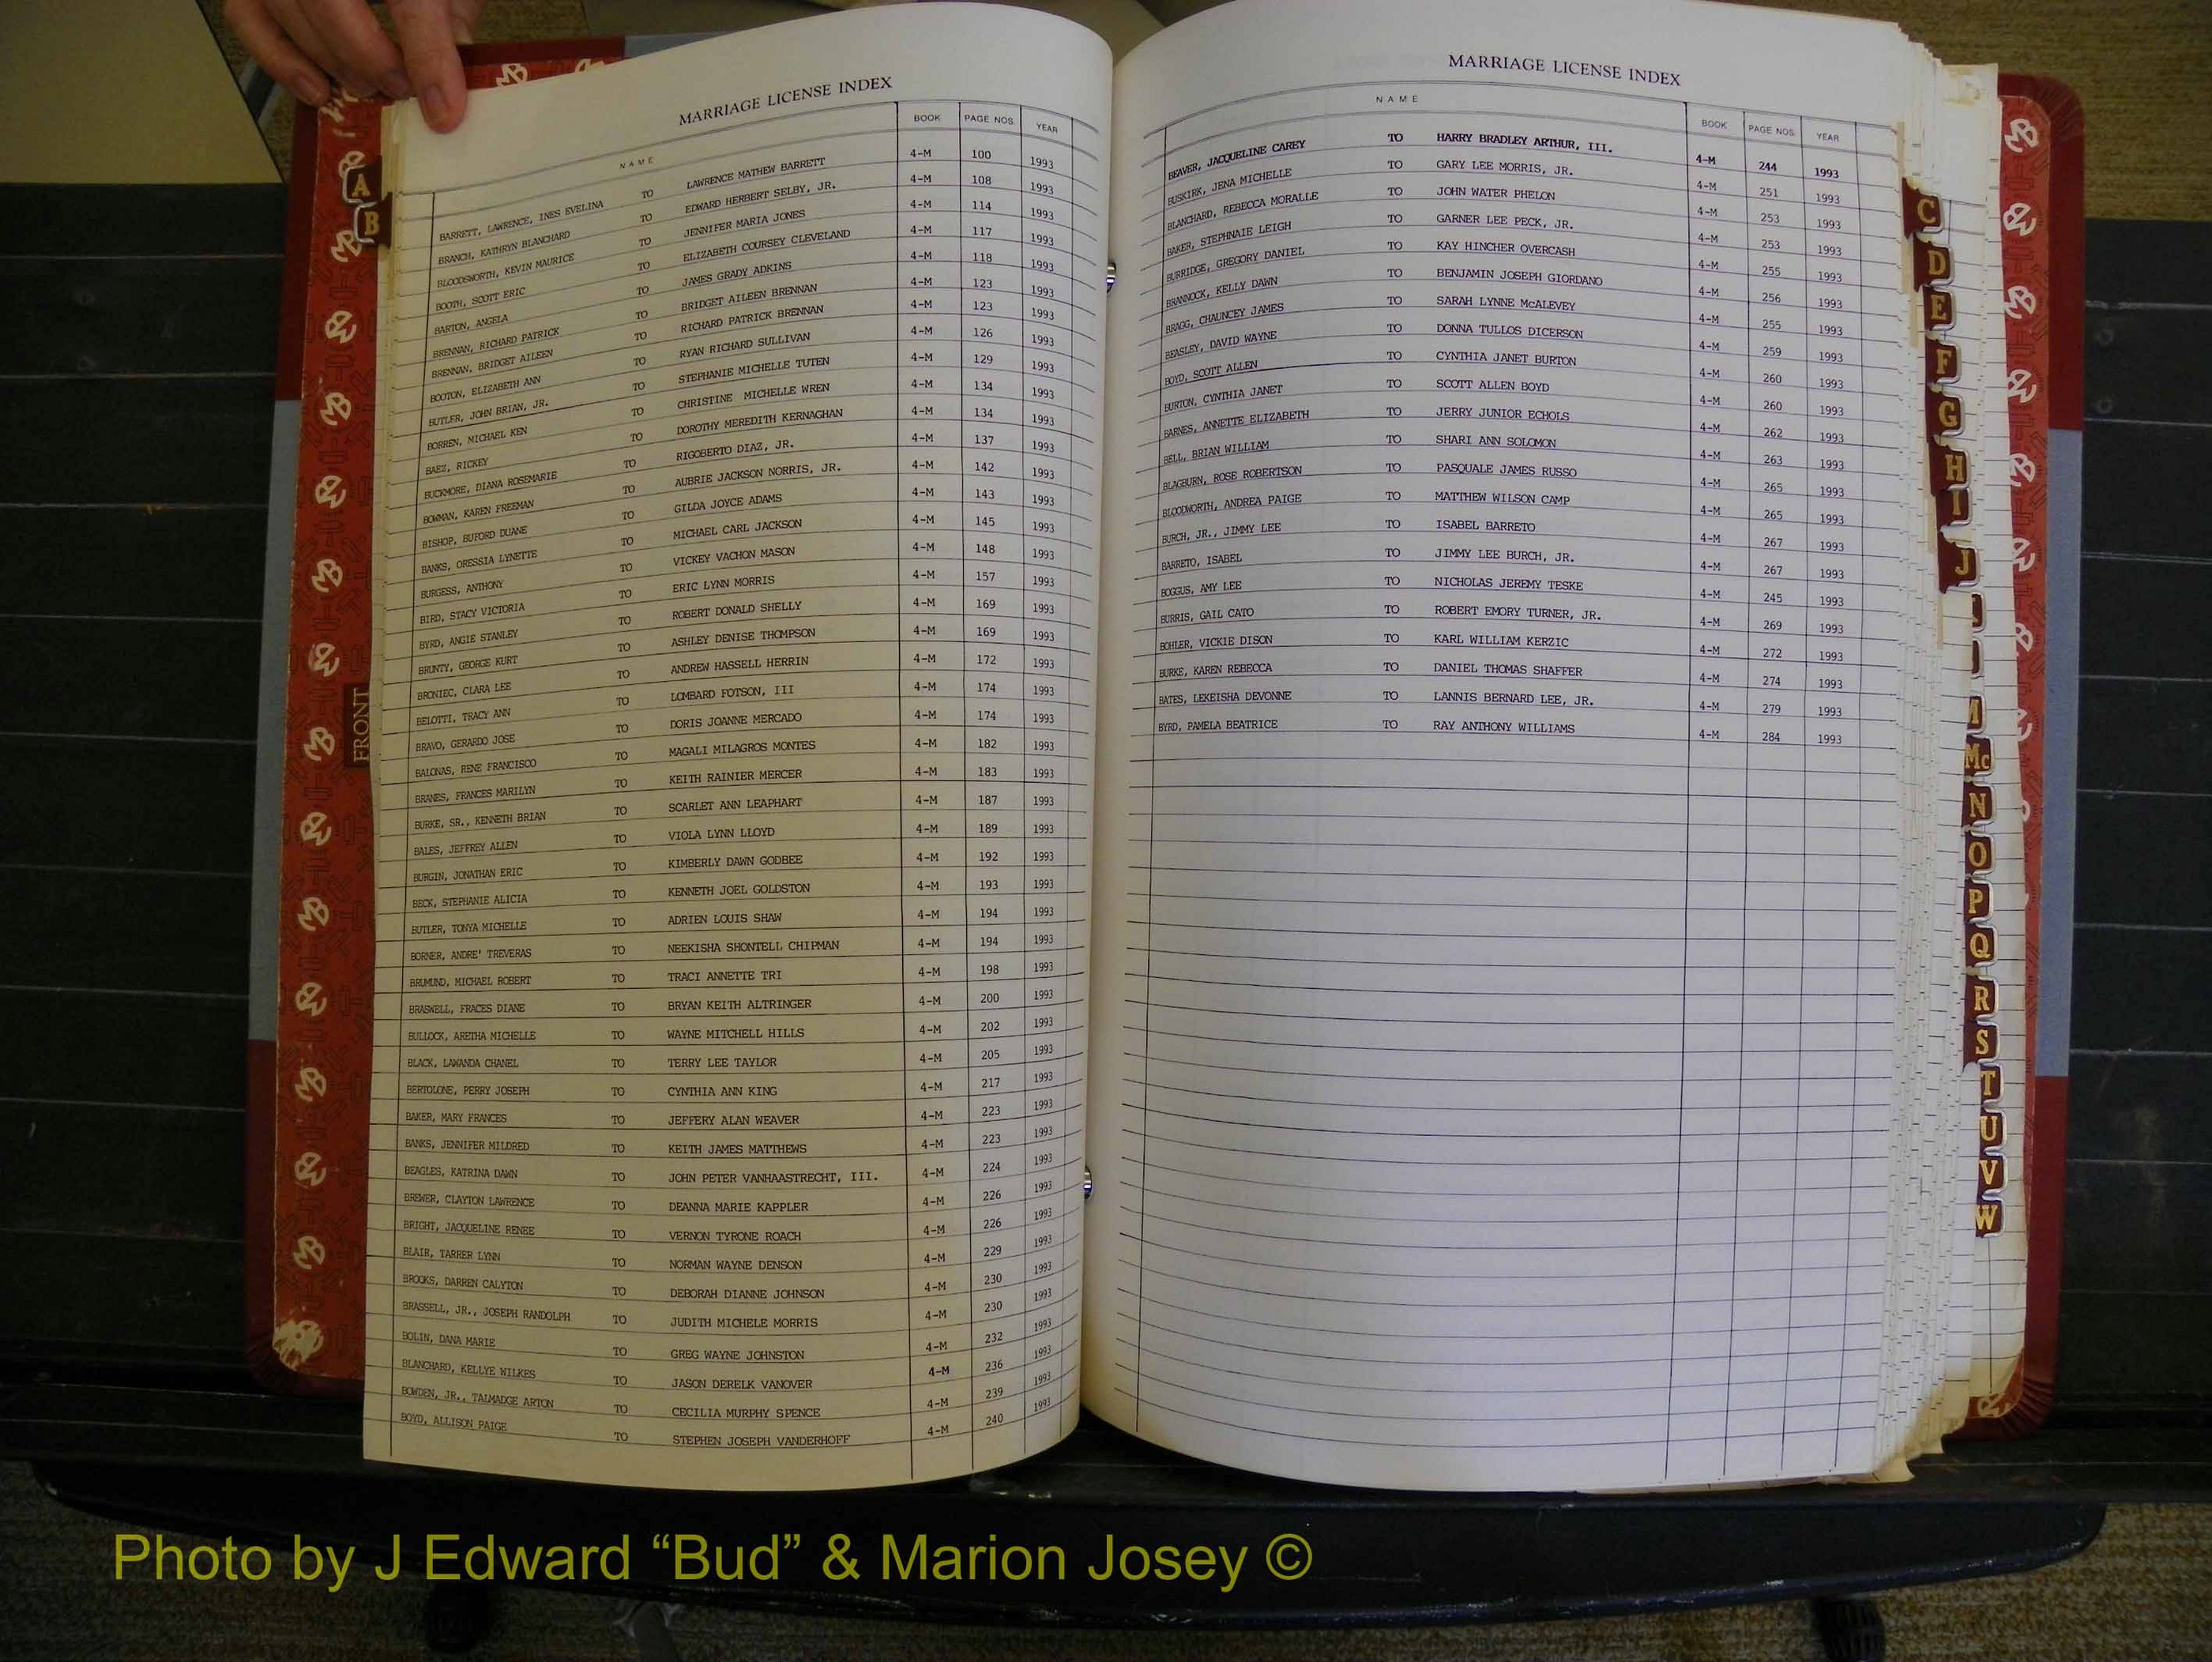 MARRIAGE LICENSE INDEX
NAME BOOK PAGE NOS. YEAR
BARRETT, LAWRENCE, INES EVELINA TO LAWRENCE MATHEW BARRETT 4-M 100 1993
BRANCH, KATHRYN BLANCHARD TO EDWARD HERBERT SELBY, JR. 4-M 108 1993
BLOODSWORTH, KEVIN MAURICE TO JENNIFER MARIA JONES 4-M 114 1993
BOOTH, SCOTT ERIC TO ELIZABETH COURSEY CLEVELAND 4-M 117 1993
BARTON, ANGELA TO JAMES GRADY ADKINS 4-M 118 1993
BRENNAN, RICHARD PATRICK TO BRIDGET AILEEN BRENNAN 4-M 123 1993
BRENNAN, BRIDGET AILEEN TO RICHARD PATRICK BRENNAN 4-M 123 1993
BOOTON, ELIZABETH ANN TO RYAN RICHARD SULLIVAN 4-M 126 1993
BUTLER, JOHN BRIAN, JR. TO STEPHANIE MICHELLE TUTEN 4-M 129 1993
BORREN, MICHAEL KEN TO CHRISTINE MICHELLE WREN 4-M 134 1993
BAEZ, RICKEY TO DOROTHY MEREDITH KERNAGHAN 4-M 134 1993
BUCKMORE, DIANA ROSEMARIE TO RIGOBERTO DIAZ, JR. 4-M 137 1993
BOWMAN, KAREN FREEMAN TO AUBRIE JACKSON NORRIS, JR. 4-M 142 1993
BISHOP, BUFORD DUANE TO GILDA JOYCE ADAMS 4-M 143 1993
BANKS, ORESSIA LYNETTE TO MICHAEL CARL JACKSON 4-M 145 1993
BURGESS, ANTHONY TO VICKEY VACHON MASON 4-M 148 1993
BIRD, STACY VICTORIA TO ERIC LYNN MORRIS 4-M 157 1993
BYRD, ANGIE STANLEY TO ROBERT DONALD SHELLY 4-M 169 1993
BRUNTY, GEORGE KURT TO ASHLEY DENISE THOMPSON 4-M 169 1993
BRONIEC, CLARA LEE TO ANDREW HASSELL HERRIN 4-M 172 1993
BELOTTI, TRACY ANN TO LOMBARD FOTSON, III 4-M 174 1993
BRAVO, GERARDO JOSE TO DORIS JOANNE MERCADO 4-M 174 1993
BALONAS, RENE FRANCISCO TO MAGALI MILAGROS MONTES 4-M 182 1993
BRANES, FRANCES MARILYN TO KEITH RAINIER MERCER 4-M 183 1993
BURKE, SR., KENNETH BRIAN TO SCARLET ANN LEAPHART 4-M 187 1993
BALES, JEFFREY ALLEN TO VIOLA LYNN LLOYD 4-M 189 1993
BURGIN, JONATHAN ERIC TO KIMBERLY DAWN GODBEE 4-M 192 1993
BECK, STEPHANIE ALICIA TO KENNETH JOEL GOLDSTON 4-M 193 1993
BUTLER, TONYA MICHELLE TO ADRIEN LOUIS SHAW 4-M 194 1993
BORNER, ANDRE' TREVERAS TO NEEKISHA SHONTELL CHIPMAN 4-M 194 1993
BRUMUND, MICHAEL ROBERT TO TRACI ANNETTE TRI 4-M 198 1993
BRASWELL, FRACES DIANE TO BRYAN KEITH ALTRINGER 4-M 200 1993
BULLOCK, ARETHA MICHELLE TO WAYNE MITCHELL HILLS 4-M 202 1993
BLACK, LAWANDA CHANEL TO TERRY LEE TAYLOR 4-M 205 1993
BERTOLONE, PERRY JOSEPH TO CYNTHIA ANN KING 4-M 217 1993
BAKER, MARY FRANCES TO JEFFERY ALAN WEAVER 4-M 223 1993
BANKS, JENNIFER MILDRED TO KEITH JAMES MATTHEWS 4-M 223 1993
BEAGLES, KATRINA DAWN TO JOHN PETER VANHAASTRECHT, III. 4-M 224 1993
BREWER, CLAYTON LAWRENCE TO DEANNA MARIE KAPPLER 4-M 226 1993
BRIGHT, JACQUELINE RENEE TO VERNON TYRONE ROACH 4-M 226 1993
BLAIR, TARRER LYNN TO NORMAN WAYNE DENSON 4-M 229 1993
BROOKS, DARREN CALYTON TO DEBORAH DIANNE JOHNSON 4-M 230 1993
BRASSELL, JR., JOSEPH RANDOLPH TO JUDITH MICHELE MORRIS 4-M 230 1993
BOLIN, DANA MARIE TO GREG WAYNE JOHNSTON 4-M 232 1993
BLANCHARD, KELLYE WILKES TO JASON DERELK VANOVER 4-M 236 1993
BOWDEN, JR., TALMADGE ARTON TO CECILIA MURPHY SPENCE 4-M 239 1993
BOYD, ALLISON PAIGE TO STEPHEN JOSEPH VANDERHOFF 4-M 240 1993
MARRIAGE LICENSE INDEX
NAME BOOK PAGE NOS. YEAR
BEAVER, JACQUELINE CAREY TO HARRY BRADLEY ARTHUR, III. 4-M 244 1993
BUSKIRK, JENA MICHELLE TO GARY LEE MORRIS, JR. 4-M 251 1993
BLANCHARD, REBECCA MORALLE TO JOHN WATER PHELON 4-M 253 1993
BAKER, STEPHNAIE LEIGH TO GARNER LEE PECK, JR. 4-M 253 1993
BURRIDGE, GREGORY DANIEL TO KAY HINCHER OVERCASH 4-M 255 1993
BRANNOCK, KELLY DAWN TO BENJAMIN JOSEPH GIORDANO 4-M 256 1993
BRAGG, CHAUNCEY JAMES TO SARAH LYNNE McALEVEY 4-M 255 1993
BEASLEY, DAVID WAYNE TO DONNA TULLOS DICERSON 4-M 259 1993
BOYD, SCOTT ALLEN TO CYNTHIA JANET BURTON 4-M 260 1993
BURTON, CYNTHIA JANET TO SCOTT ALLEN BOYD 4-M 260 1993
BARNES, ANNETTE ELIZABETH TO JERRY JUNIOR ECHOLS 4-M 262 1993
BELL, BRIAN WILLIAM TO SHARI ANN SOLOMON 4-M 263 1993
BLAGBURN, ROSE ROBERTSON TO PASQUALE JAMES RUSSO 4-M 265 1993
BLOODWORTH, ANDREA PAIGE TO MATTHEW WILSON CAMP 4-M 265 1993
BURCH, JR., JIMMY LEE TO ISABEL BARRETO 4-M 267 1993
BARRETO, ISABEL TO JIMMY LEE BURCH, JR. 4-M 267 1993
BOGGUS, AMY LEE TO NICHOLAS JEREMY TESKE 4-M 245 1993
BURRIS, GAIL CATO TO ROBERT EMORY TURNER, JR. 4-M 269 1993
BOHLER, VICKIE DISON TO KARL WILLIAM KERZIC 4-M 272 1993
BURKE, KAREN REBECCA TO DANIEL THOMAS SHAFFER 4-M 274 1993
BATES, LEKEISHA DEVONNE TO LANNIS BERNARD LEE, JR. 4-M 279 1993
BYRD, PAMELA BEATRICE TO RAY ANTHONY WILLIAMS 4-M 284 1993
A
B
FRONT
C
D
E
F
G
H
I
J
M
Mc
N
O
P
Q
R
S
T
U
V
W
Photo by J Edward “Bud” & Marion Josey ©